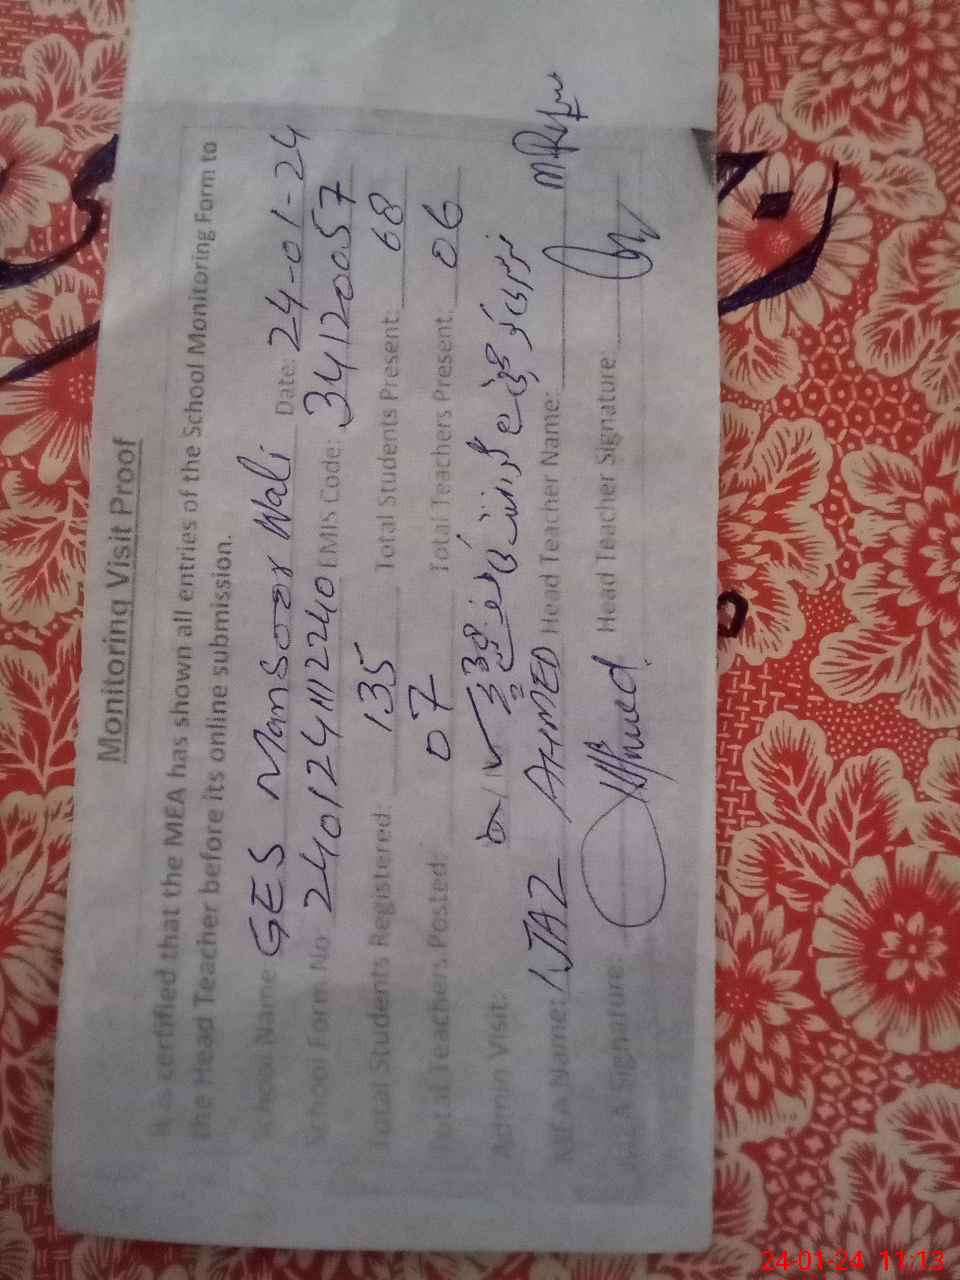 Monitoring Visit Proof
It is certified that the MEA has shown all entries of the School Monitoring Form to
the Head Teacher before its online submission.
School Name: GES Mansoor Wali Date: 24-01-24
School Form No 24012411112240 EMIS Code: 34120057
Total Students Registered: 135 Total Students Present: 68
Total Teachers Posted: 07 Total Teachers Present: 06
Admin Visit:
MEA Name: IJAZ AHMED Head Teacher Name:
MEA Signature: Head Teacher Signature:
24-01-24 11:13